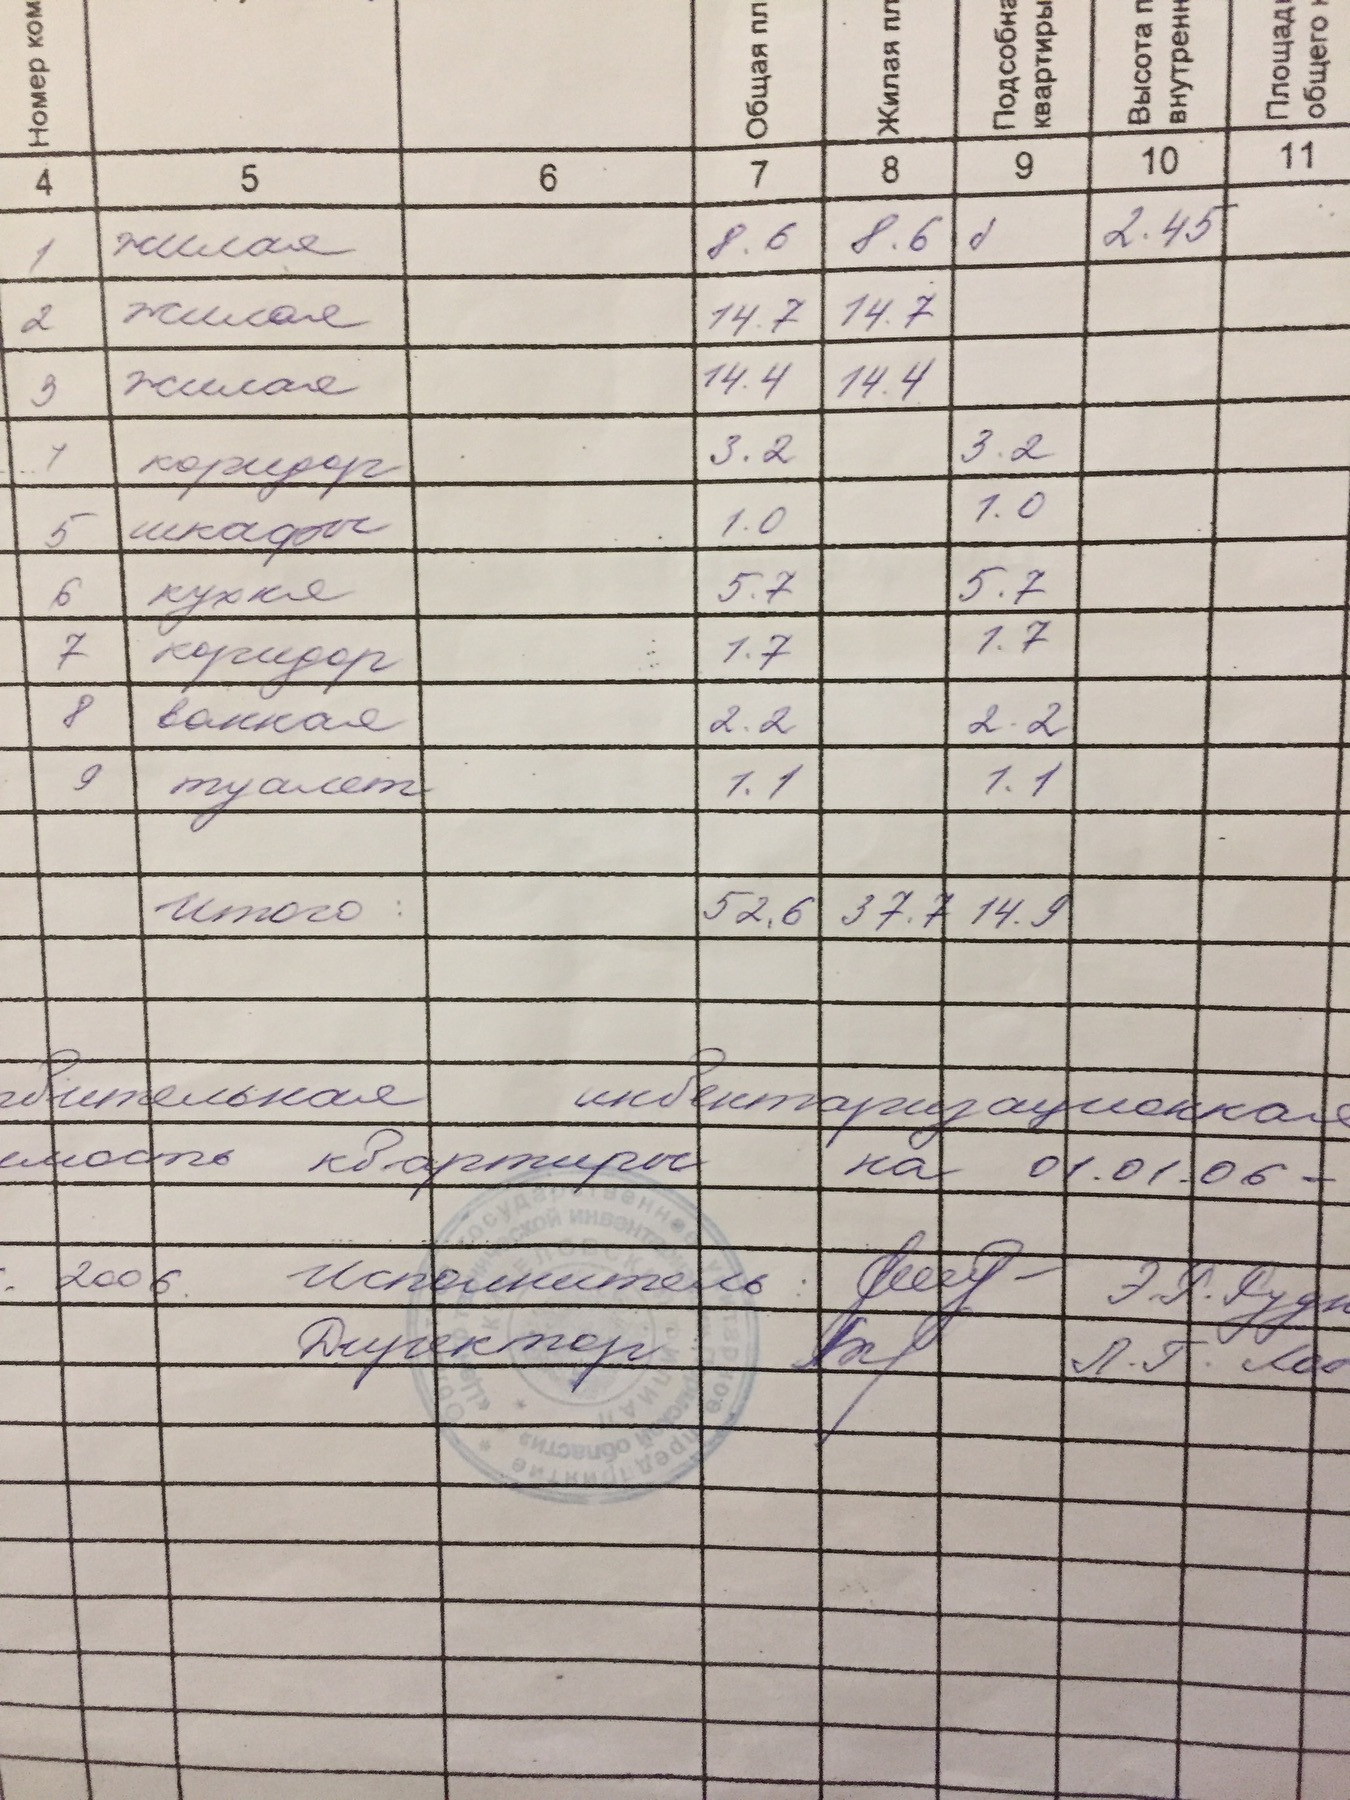 Номер ком Общая пл Жилая пл Подсобна квартиры Высота п внутренн Площад общего
4 5 6 7 8 9 10 11
1 жилая 8.6 8.6 2.45
2 жилая 14.7 14.7
3 жилая 14.4 14.4
коридор 3.2 3.2
5 шкафы 1.0 1.0
6 кухня 5.7 5.7
7 коридор 1.7 1.7
8 ванная 2.2 2.2
9 туалет 1.1 1.1
Итого: 52.6 37.7 14.9
вительная инвентаризационная
имость квартиры на 01.01.06 -
. 2006. Исполнитель: Э.Р. Рудн
Директор Л.Г.
государственное предприятие
филиал
области